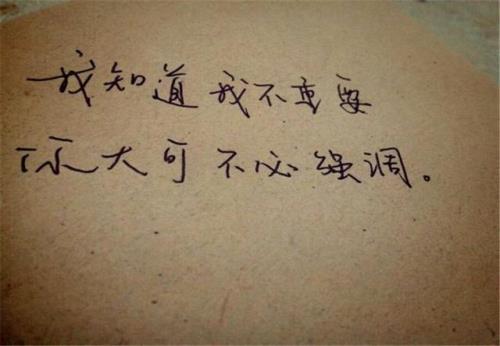 我知道我不重要
你大可不必强调。